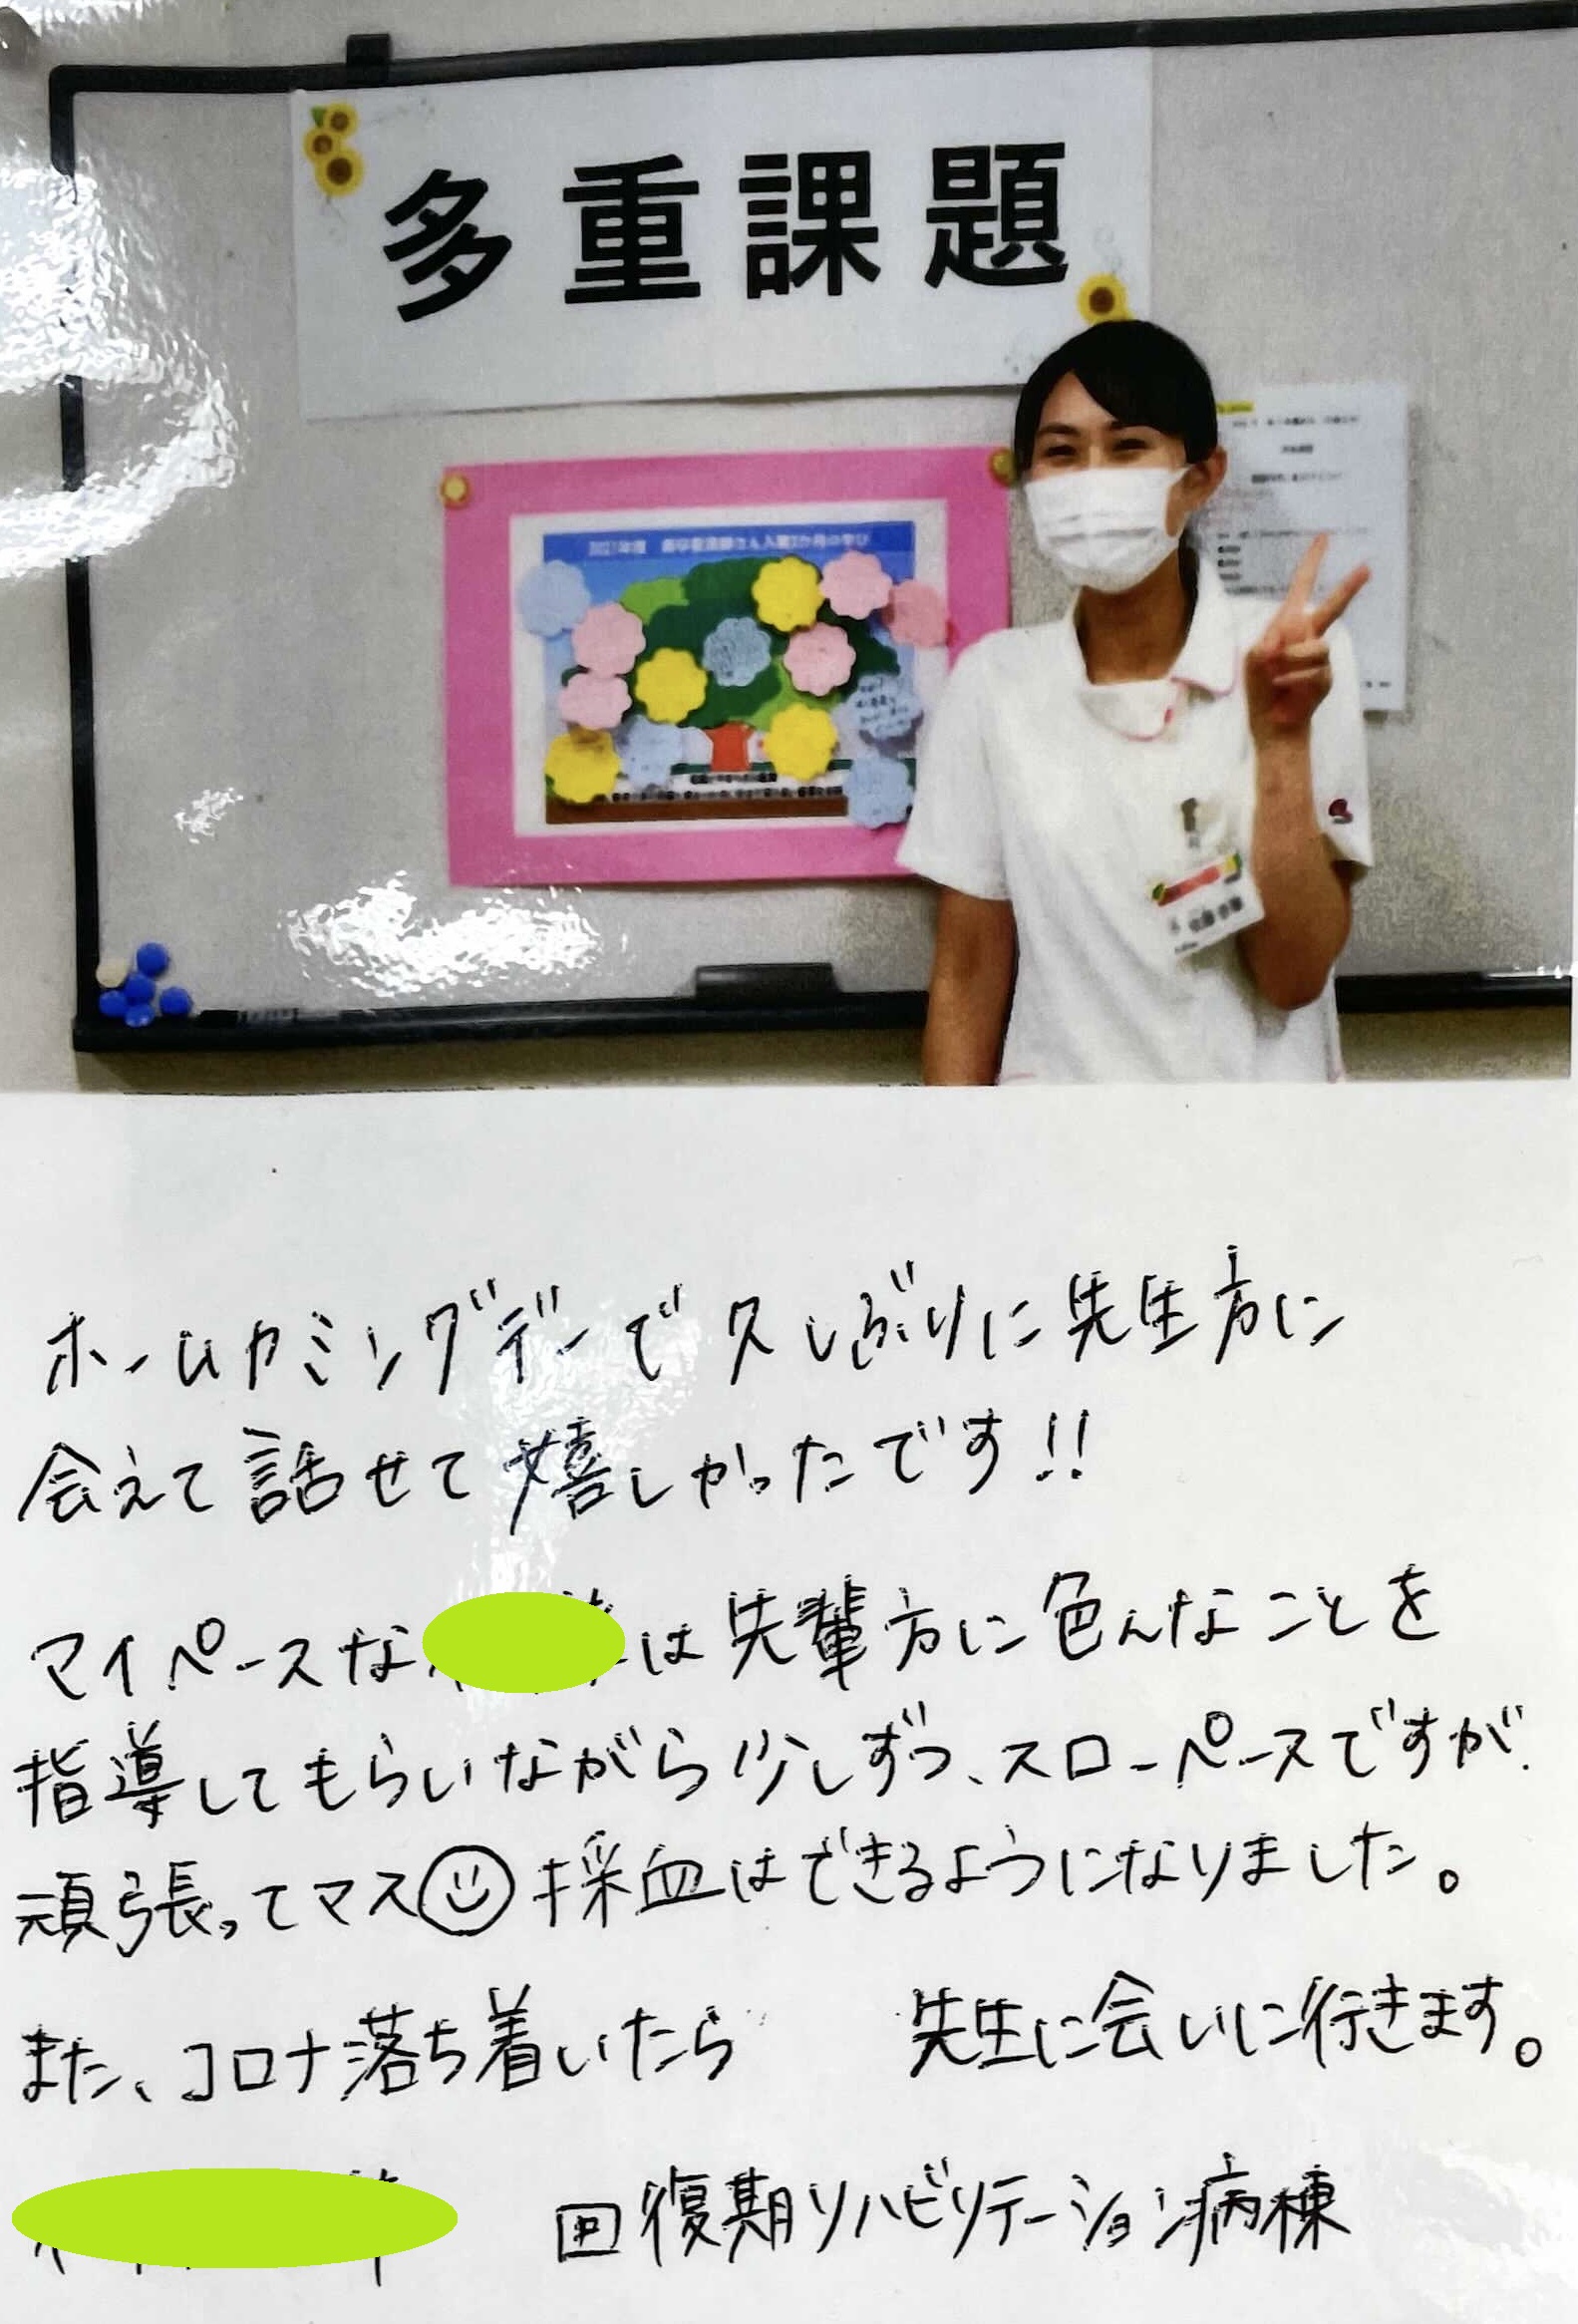 多重課題
ホームカミングデーで久しぶりに先生方に
会えて話せて嬉しかったです!!
マイペースな は先輩方に色んなことを
指導してもらいながら少しずつ、スローペースですが、
頑張ってマス 採血はできるようになりました。
また、コロナ落ち着いたら 先生に会いに行きます。
回復期リハビリテーション病棟